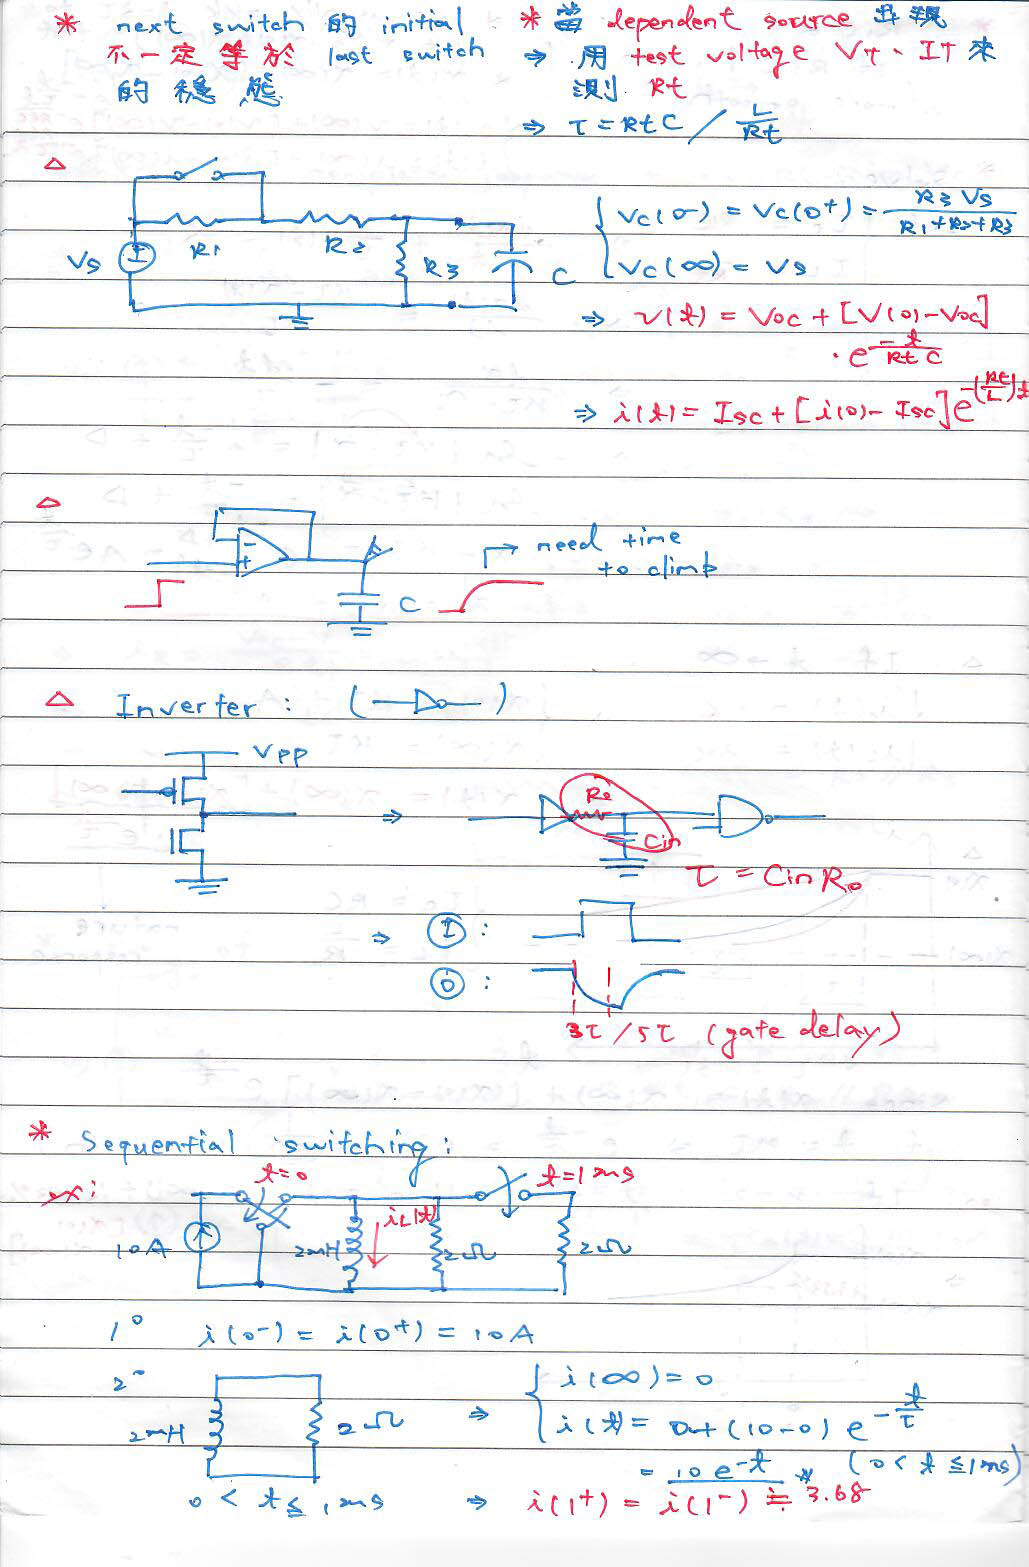 * next switch 的 initial
不一定等於 last switch
的穩態
* 當 dependent source 出現
⇒ 用 test voltage VT、IT 來
測 Rt
⇒ τ = RtC / L/Rt
△
R1
R2
Vs
R3
C
Vc(0-) = Vc(0+) = R3 Vs / R1+R2+R3
Vc(∞) = Vs
⇒ v(t) = Voc + [V(0)-Voc]
· e^-t/RtC
⇒ i(t) = Isc + [i(0)-Isc] e^-(Rt/L)t
△
-
+
C
need time
to climb
△ Inverter :
VDD
⇒
Ro
Cin
τ = Cin Ro
⇒ I :
O :
3τ / 5τ (gate delay)
* Sequential switching :
ex:
t=0
t=1ms
10A
2mH
iL(t)
2Ω
2Ω
1° i(0-) = i(0+) = 10A
2°
2mH
2Ω
⇒ i(∞) = 0
i(t) = 0+(10-0) e^-t/τ
= 10 e^-t (0 < t ≦ 1ms)
0 < t ≦ 1ms
⇒ i(1+) = i(1-) ≒ 3.68